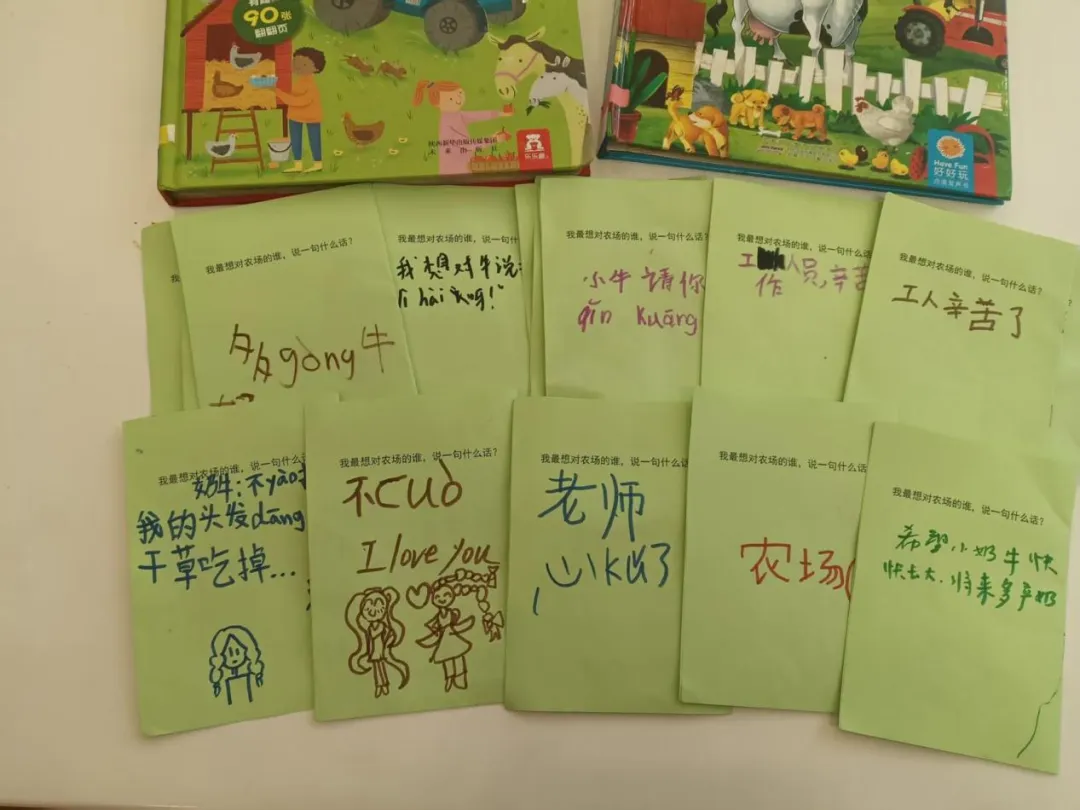 90张
翻翻页
乐乐趣
Have Fun
好好玩
我最想对农场的谁，说一句什么话？
多gòng牛
我最想对农场的谁，说一句什
我想对牛说
个hài
呀！"
我最想对农场的谁，说一句什么话？
小牛请你
qīn kuāng
我最想对农场的谁，说一句什么
工 人员，辛苦
作
我最想对农场的谁，说一句什么话？
工人辛苦了
我最想对农场的谁，说一句什么
奶牛：不yào
我的头发dāng
干草吃掉...
我最想对农场的谁，说一句什么话？
不cuò
I love you
我最想对农场的谁，说一句什么话？
老师
了
我最想对农场的谁，说一句什么
农场
我最想对农场的谁，说一句什么话？
希望小奶牛快
快长大，将来多产奶